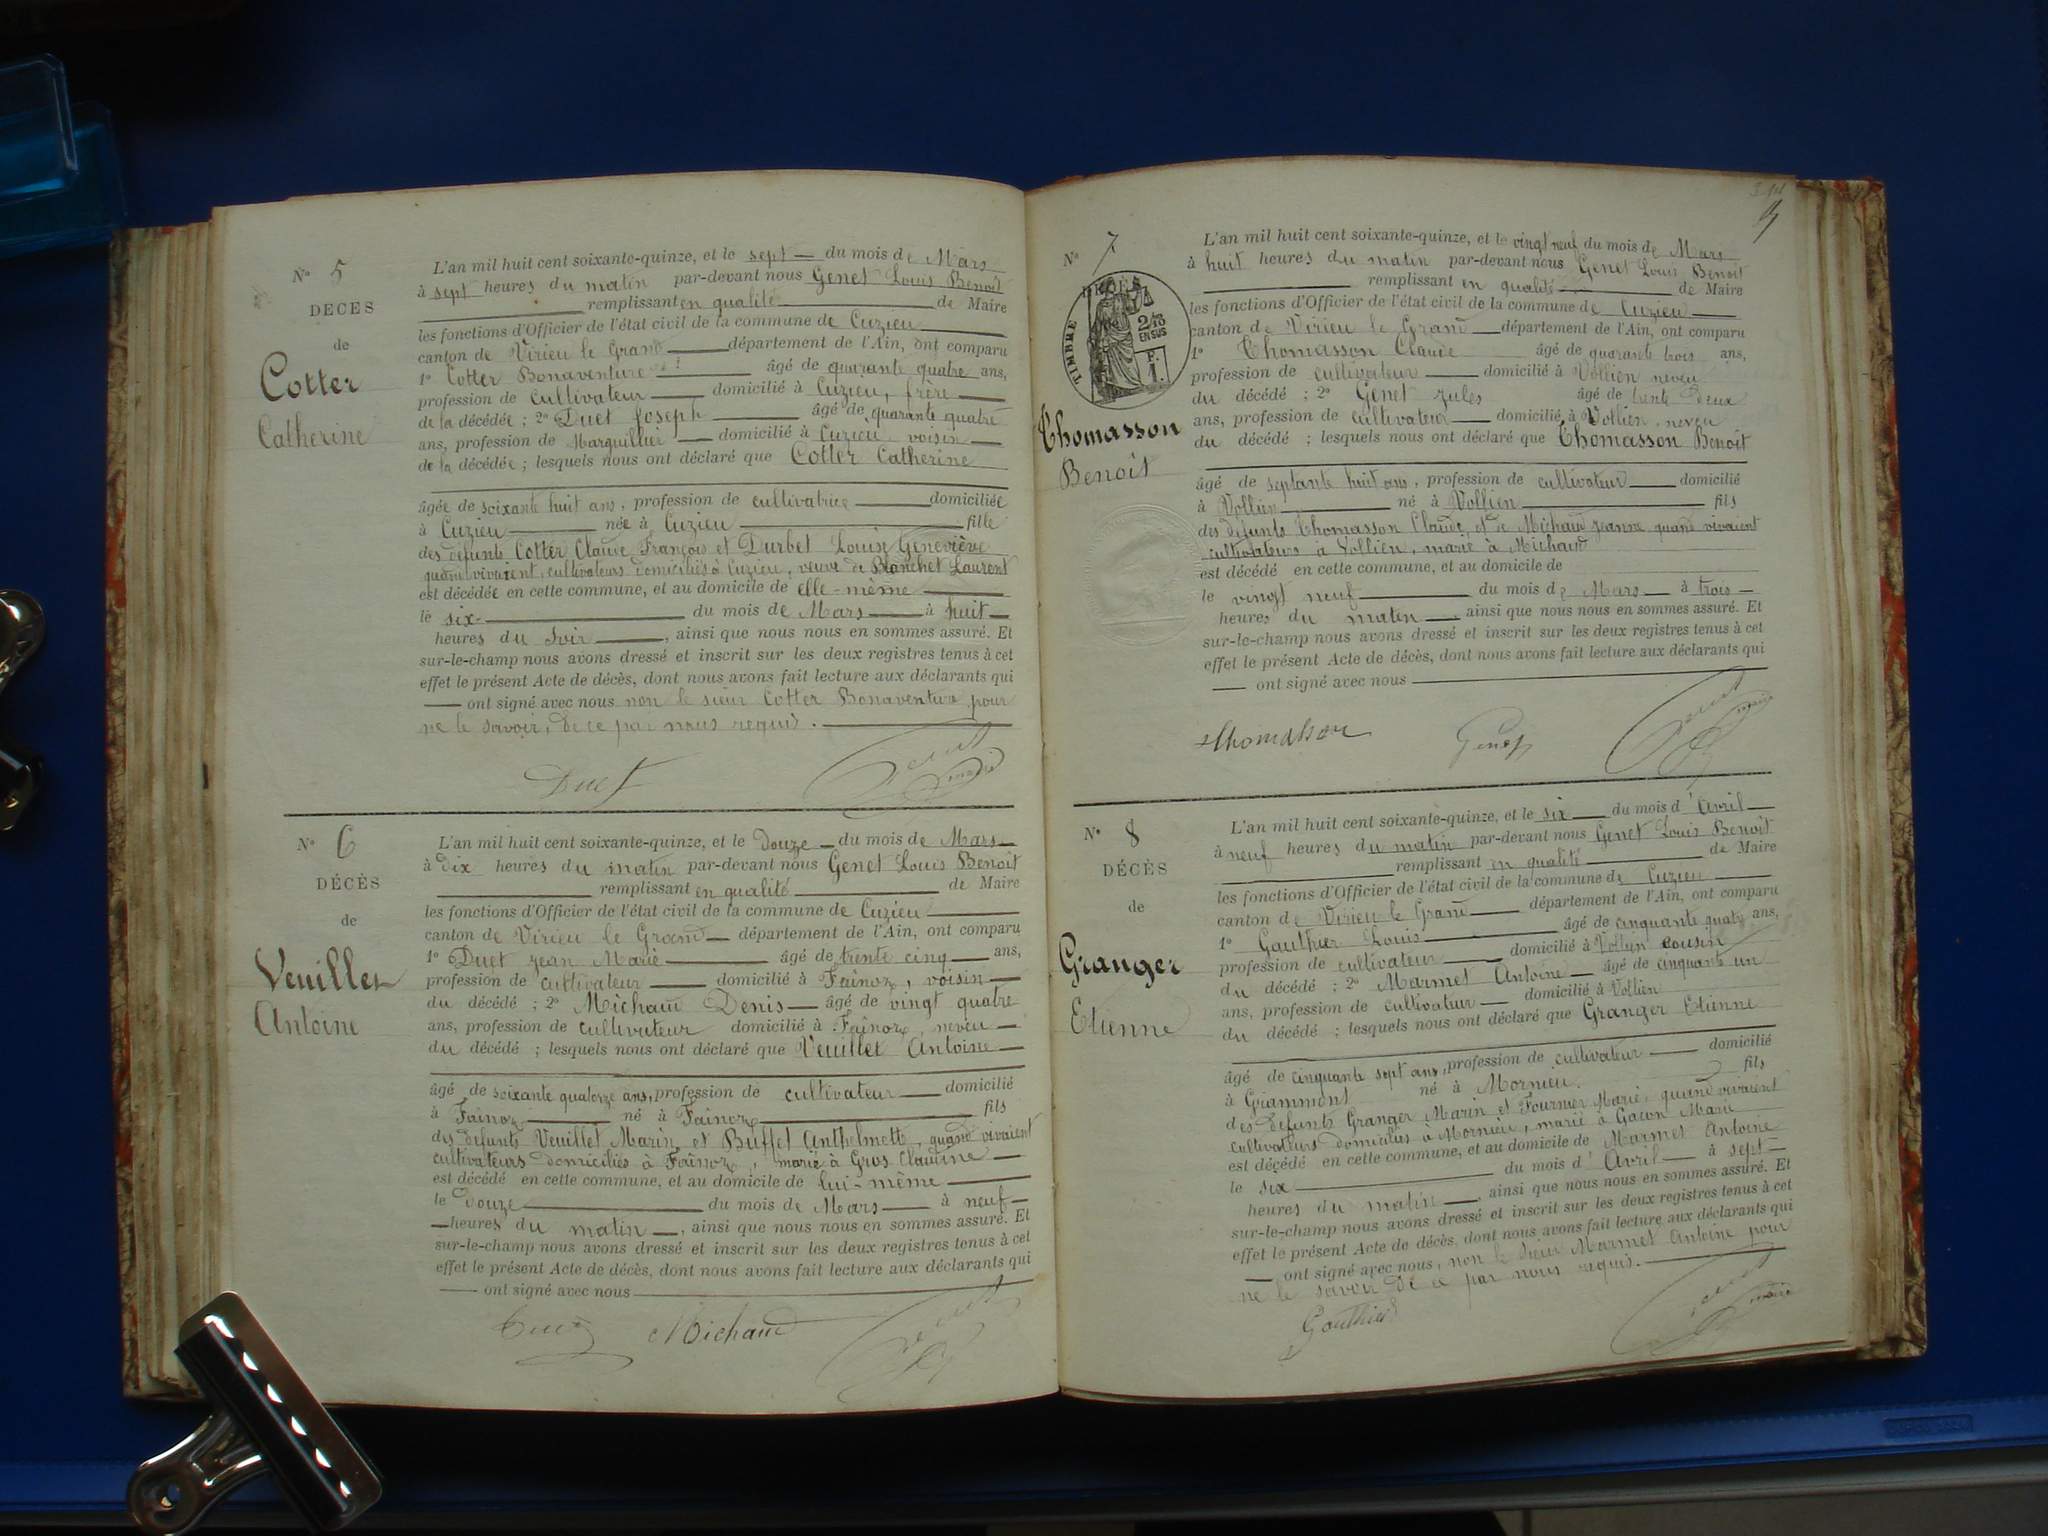 N° 5
DÉCÈS
de
Cotter
Catherine
L'an mil huit cent soixante-quinze, et le sept du mois de Mars
à sept heures du matin par-devant nous Genet Louis Benoît
remplissant en qualité de Maire
les fonctions d'Officier de l'état civil de la commune de Cuzieu
canton de Virieu le Grand département de l'Ain, ont comparu
1° Cotter Bonaventure âgé de quarante quatre ans,
profession de cultivateur domicilié à Cuzieu, frère
de la décédée ; 2° Duet Joseph âgé de quarante quatre
ans, profession de Marguillier domicilié à Cuzieu voisin
de la décédée ; lesquels nous ont déclaré que Cotter Catherine
âgée de soixante huit ans, profession de cultivatrice domiciliée
à Cuzieu née à Cuzieu fille
des défunts Cotter Claude François et Durbet Louise Geneviève
quand vivaient, cultivateurs domiciliés à Cuzieu, veuve de Blanchet Laurent
est décédée en cette commune, et au domicile de elle-même
le six du mois de Mars à huit
heures du soir, ainsi que nous nous en sommes assuré. Et
sur-le-champ nous avons dressé et inscrit sur les deux registres tenus à cet
effet le présent Acte de décès, dont nous avons fait lecture aux déclarants qui
ont signé avec nous non le sieur Cotter Bonaventure pour
ne le savoir, de ce par nous requis.
Duet
maire
N° 6
DÉCÈS
de
Veuillet
Antoine
L'an mil huit cent soixante-quinze, et le douze du mois de Mars
à dix heures du matin par-devant nous Genet Louis Benoît
remplissant en qualité de Maire
les fonctions d'Officier de l'état civil de la commune de Cuzieu
canton de Virieu le Grand département de l'Ain, ont comparu
1° Duet Jean Marie âgé de trente cinq ans,
profession de cultivateur domicilié à Fainoz, voisin
du décédé ; 2° Michaud Denis âgé de vingt quatre
ans, profession de cultivateur domicilié à Fainoz, neveu
du décédé ; lesquels nous ont déclaré que Veuillet Antoine
âgé de soixante quatorze ans, profession de cultivateur domicilié
à Fainoz né à Fainoz fils
des défunts Veuillet Marin et Buffet Anthelmette, quand vivaient
cultivateurs domiciliés à Fainoz, marié à Gros Claudine
est décédé en cette commune, et au domicile de lui-même
le douze du mois de Mars à neuf
heures du matin, ainsi que nous nous en sommes assuré. Et
sur-le-champ nous avons dressé et inscrit sur les deux registres tenus à cet
effet le présent Acte de décès, dont nous avons fait lecture aux déclarants qui
ont signé avec nous
Michaud
N° 7
DÉCÈS
TIMBRE
2/10
EN SUS
Thomasson
Benoît
L'an mil huit cent soixante-quinze, et le vingt neuf du mois de Mars
à huit heures du matin par-devant nous Genet Louis Benoît
remplissant en qualité de Maire
les fonctions d'Officier de l'état civil de la commune de Cuzieu
canton de Virieu le Grand département de l'Ain, ont comparu
1° Thomasson Claude âgé de quarante trois ans,
profession de cultivateur domicilié à Vollien neveu
du décédé ; 2° Genet Jules âgé de trente deux
ans, profession de cultivateur domicilié à Vollien, neveu
du décédé ; lesquels nous ont déclaré que Thomasson Benoît
âgé de septante huit ans, profession de cultivateur domicilié
à Vollien né à Vollien fils
des défunts Thomasson Claude, et de Michaud Jeanne quand vivaient
cultivateurs à Vollien, marié à Michaud
est décédé en cette commune, et au domicile de
le vingt neuf du mois de Mars à trois
heures du matin, ainsi que nous nous en sommes assuré. Et
sur-le-champ nous avons dressé et inscrit sur les deux registres tenus à cet
effet le présent Acte de décès, dont nous avons fait lecture aux déclarants qui
ont signé avec nous
Thomasson Genet
N° 8
DÉCÈS
de
Granger
Etienne
L'an mil huit cent soixante-quinze, et le six du mois d'Avril
à neuf heures du matin par-devant nous Genet Louis Benoît
remplissant en qualité de Maire
les fonctions d'Officier de l'état civil de la commune de Cuzieu
canton de Virieu le Grand département de l'Ain, ont comparu
1° Gauthier Louis âgé de cinquante quatre ans,
profession de cultivateur domicilié à Vollien cousin
du décédé ; 2° Marmet Antoine âgé de cinquante un
ans, profession de cultivateur domicilié à Vollien
du décédé ; lesquels nous ont déclaré que Granger Etienne
âgé de cinquante sept ans, profession de cultivateur domicilié
à Giammont né à Mornieu. fils
des défunts Granger Marin et Fournier Marie, quand vivaient
cultivateurs domiciliés à Mornieu, marié à Gacon Marie
est décédé en cette commune, et au domicile de Marmet Antoine
le six du mois d'Avril à sept
heures du matin, ainsi que nous nous en sommes assuré. Et
sur-le-champ nous avons dressé et inscrit sur les deux registres tenus à cet
effet le présent Acte de décès, dont nous avons fait lecture aux déclarants qui
ont signé avec nous, non le sieur Marmet Antoine pour
ne le savoir de ce par nous requis.
Gauthier
maire